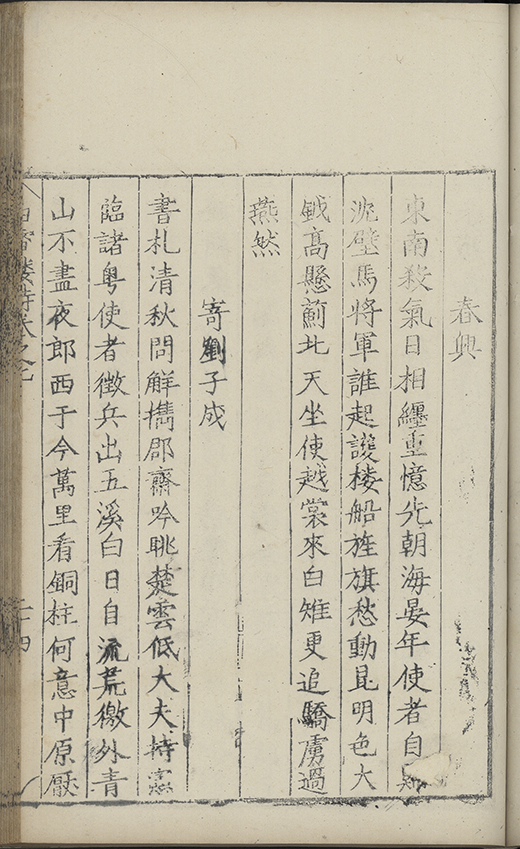 春興
東南殺氣日相纏重憶先朝海晏年使者自
沉璧馬將軍誰起護楼船旌旗愁動昆明色大
鉞高懸薊北天坐使越裳來白雉更追驕虜過
燕然
寄劉子成
書札清秋問觧擕郡齋吟眺楚雲低大夫持憲
臨諸粤使者徵兵出五溪白日自流荒徼外青
山不盡夜郎西于今萬里看銅柱何意中原厭
楼詩之七
二十四